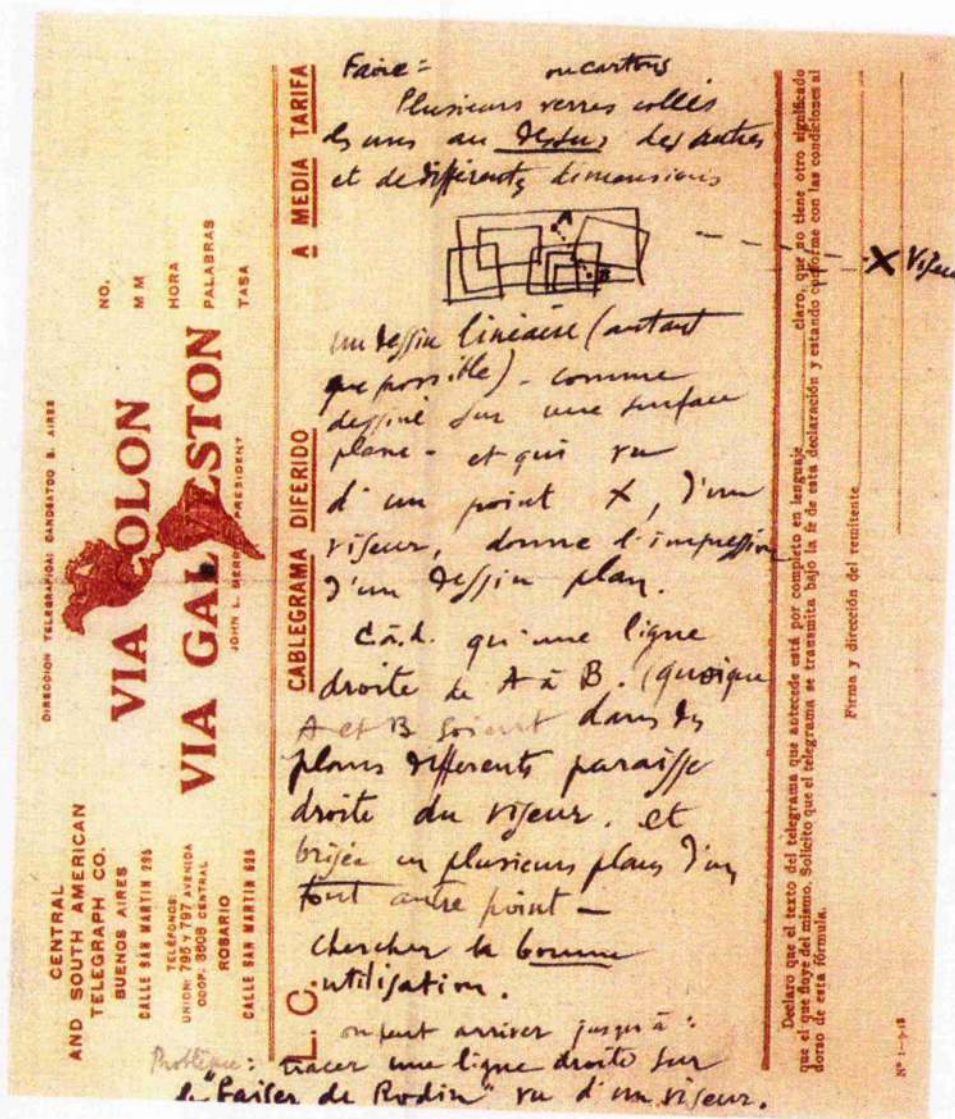 Faire = ou cartons
Plusieurs verres collés
les uns au dessus des autres
et de différentes dimensions
A
B
X Viseur
un dessin linéaire (autant
que possible) - comme
dessiné sur une surface
plane - et qui vu
d'un point X, d'un
viseur, donne l'impression
d'un dessin plan.
C.à.d. qu'une ligne
droite de A à B. (quoique
A et B soient dans des
plans différents paraisse
droite du viseur. et
brisée en plusieurs plans d'un
tout autre point -
chercher la bonne
utilisation.
on peut arriver jusqu'à :
Pratique : tracer une ligne droite sur
le "Baiser de Rodin" vu d'un viseur.
CENTRAL
AND SOUTH AMERICAN
TELEGRAPH CO.
BUENOS AIRES
CALLE SAN MARTIN 295
TELÉFONOS:
UNION: 795 Y 797 AVENIDA
COOP. 3608 CENTRAL
ROSARIO
CALLE SAN MARTIN 625
DIRECCION TELEGRAFICA: CANDSATCO B. AIRES
VIA COLON
VIA GALVESTON
JOHN L. MERRILL PRESIDENT
NO.
M M
HORA
PALABRAS
TASA
L. C. CABLEGRAMA DIFERIDO A MEDIA TARIFA
Declaro que el texto del telegrama que antecede está por completo en lenguaje claro, que no tiene otro significado
que el que fluye del mismo. Solicito que el telegrama se transmita bajo la fe de esta declaración y estando conforme con las condiciones al
dorso de esta fórmula.
Firma y dirección del remitente
Nº 1-7-18